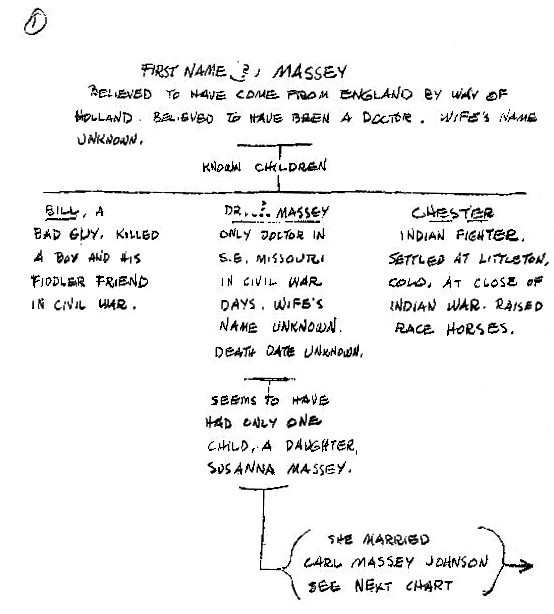 1
FIRST NAME ?, MASSEY
BELIEVED TO HAVE COME FROM ENGLAND BY WAY OF
HOLLAND. BELIEVED TO HAVE BEEN A DOCTOR. WIFE'S NAME
UNKNOWN.
KNOWN CHILDREN
BILL, A
BAD GUY. KILLED
A BOY AND HIS
FIDDLER FRIEND
IN CIVIL WAR.
DR. ? MASSEY
ONLY DOCTOR IN
S.E. MISSOURI
IN CIVIL WAR
DAYS. WIFE'S
NAME UNKNOWN.
DEATH DATE UNKNOWN.
CHESTER
INDIAN FIGHTER.
SETTLED AT LITTLETON,
COLO. AT CLOSE OF
INDIAN WAR. RAISED
RACE HORSES.
SEEMS TO HAVE
HAD ONLY ONE
CHILD, A DAUGHTER,
SUSANNA MASSEY.
SHE MARRIED
CARL MASSEY JOHNSON
SEE NEXT CHART